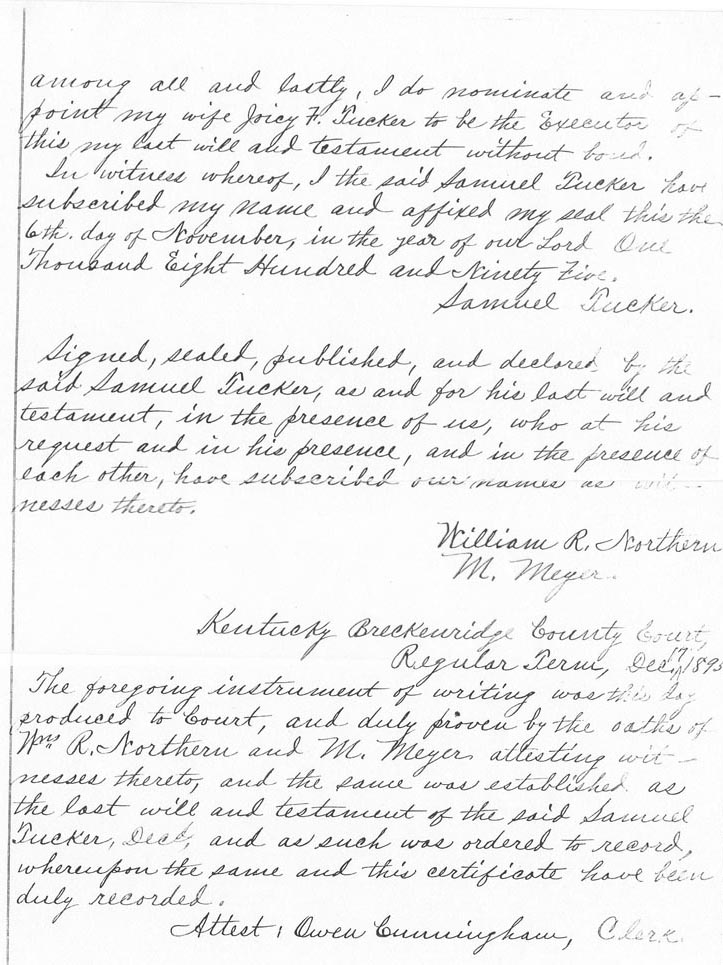 among all and lastly, I do nominate and ap-
point my wife Joicy F. Tucker to be the Executor of
this my last will and testament without bond.
In witness whereof, I the said Samuel Tucker have
subscribed my name and affixed my seal this the
6th. day of November, in the year of our Lord One
Thousand Eight Hundred and Ninety Five.
Samuel Tucker.
Signed, sealed, published, and declared by the
said Samuel Tucker, as and for his last will and
testament, in the presence of us, who at his
request and in his presence, and in the presence of
each other, have subscribed our names as wit-
nesses thereto.
William R. Northern
M. Meyer.
Kentucky Breckenridge County Court,
Regular Term, Dec. 17, 1895
The foregoing instrument of writing was this day
produced to Court, and duly proven by the oaths of
Wm R. Northern and M. Meyer attesting wit-
nesses thereto, and the same was established as
the last will and testament of the said Samuel
Tucker, Decd, and as such was ordered to record,
whereupon the same and this certificate have been
duly recorded.
Attest: Owen Cunningham, Clerk.